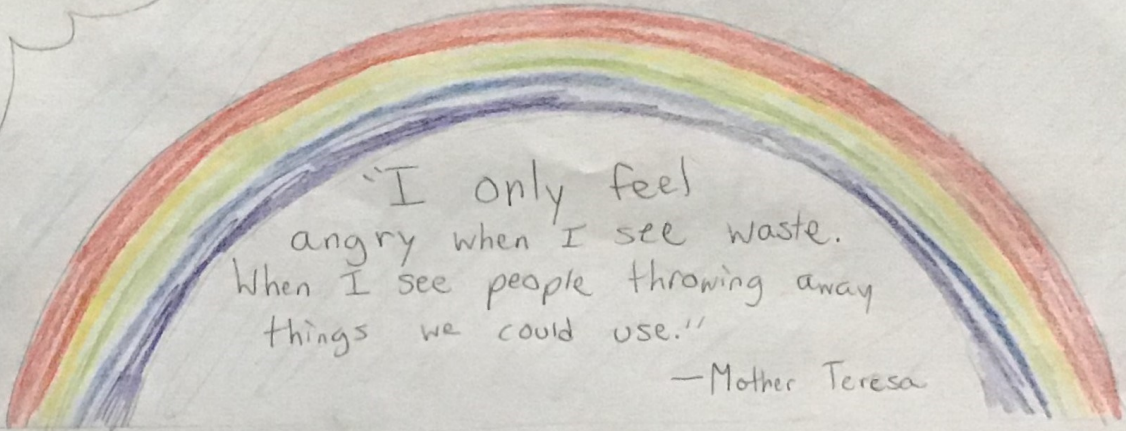 "I only feel
angry when I see waste.
When I see people throwing away
things we could use."
—Mother Teresa